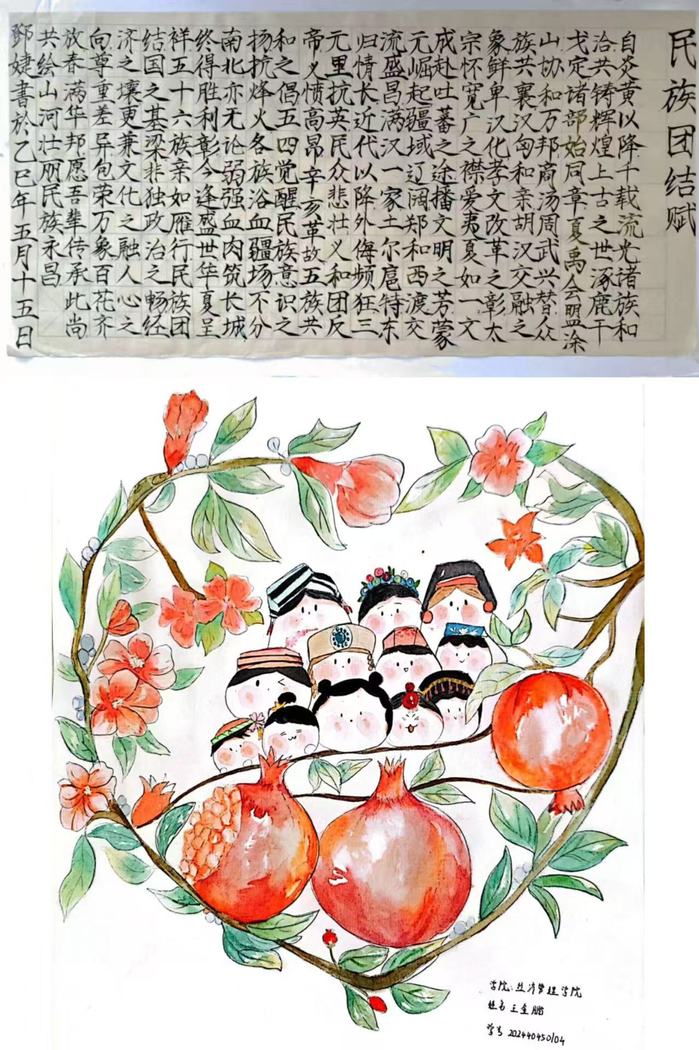 民族团结赋
自炎黄以降千载流光诸族和
洽共铸辉煌上古之世涿鹿干
戈定诸部始同章夏禹会盟涂
山协和万邦商汤周武兴替众
族共襄汉匈和亲胡汉交融之
象鲜卑汉化孝文改革之彰太
宗怀宽广之襟爱夷夏如一文
成赴吐蕃之途播文明之芳蒙
元崛起疆域辽阔郑和西渡交
流盛昌满汉一家土尔扈特东
归情长近代以降外侮频狂三
元里抗英民众悲壮义和团反
帝义愤高昂辛亥革故五族共
和之倡五四觉醒民族意识之
扬抗烽火各族浴血疆场不分
南北亦无论弱强血肉筑长城
终得胜利彰今逢盛世华夏呈
祥五十六族亲如雁行民族团
结国之基梁非独政治之畅经
济之壤更兼文化之融人心之
向尊重差异包荣万象百花齐
放春满华邦愿吾辈传承此尚
共绘山河壮丽民族永昌
鄧婕書於乙巳年五月十五日
学院:经济管理学院
姓名 王金鹏
学号 202440450104